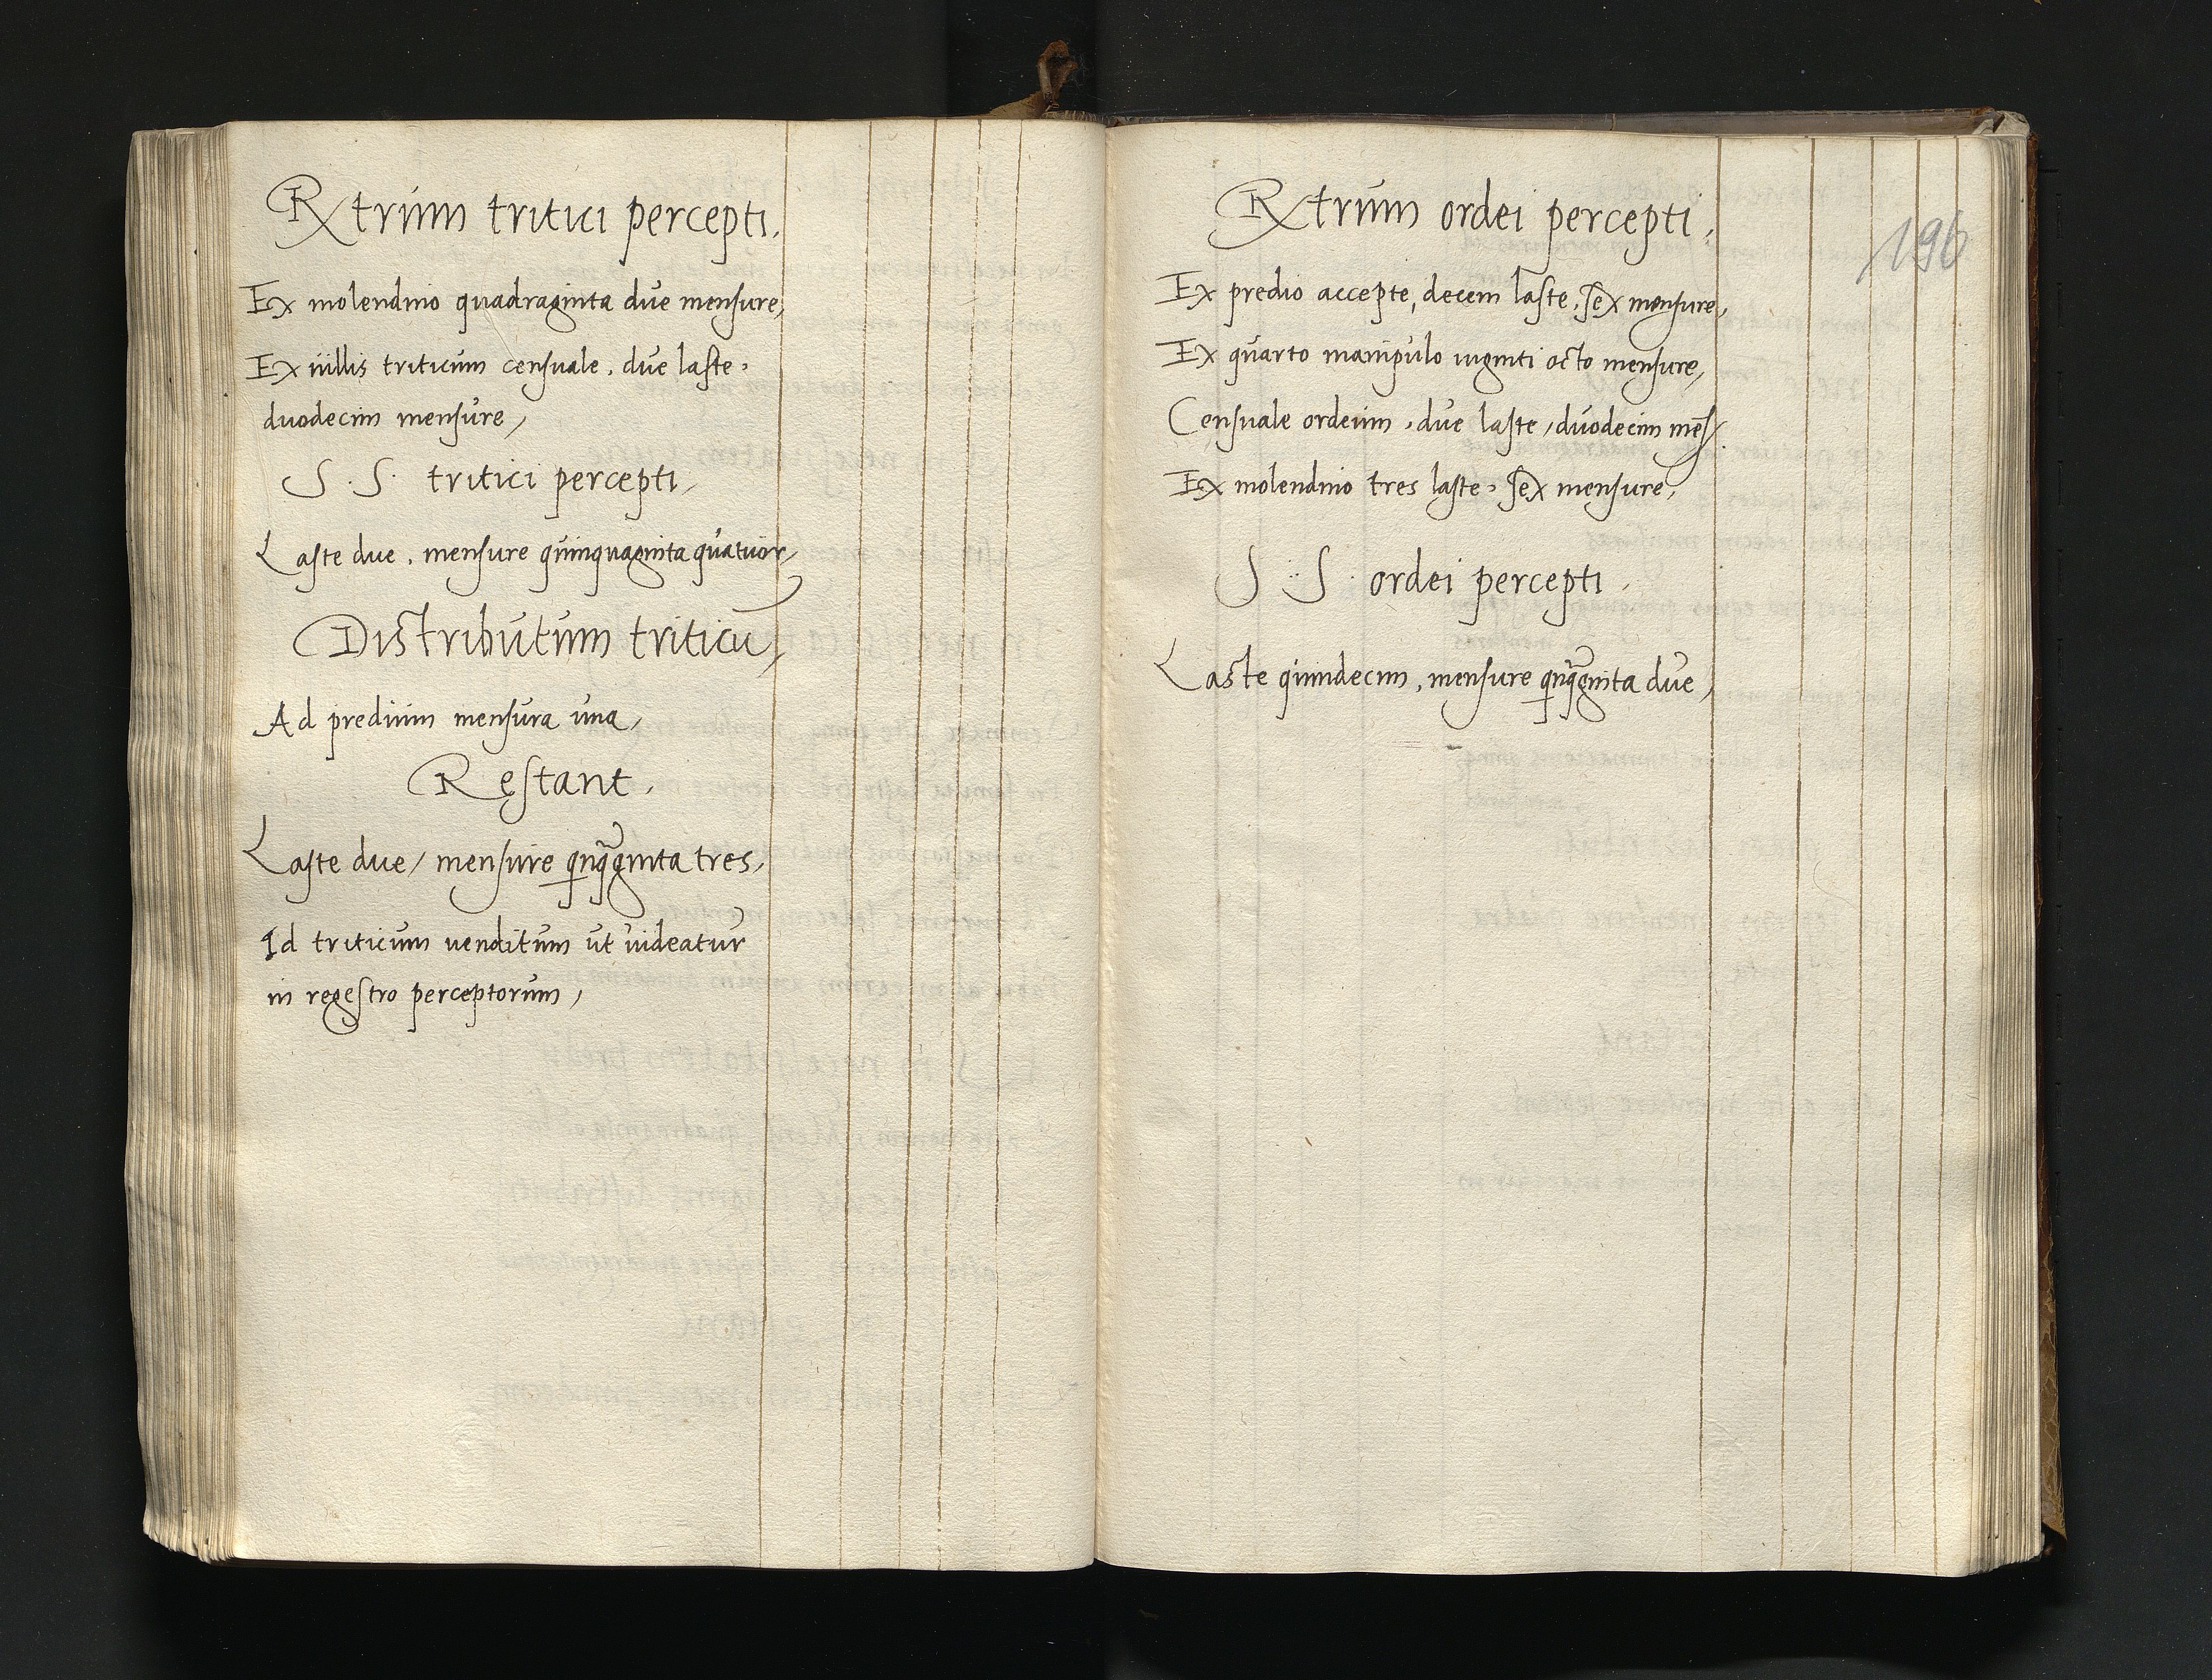 Rxtrum tritici percepti.
Ex molendino quadraginta due mensure,
Ex uillis triticum censuale, due laste,
duodecim mensure,
S. S. tritici percepti,
Laste due, mensure quinquaginta quatuor,
Distributum triticu,
Ad predium mensura una,
Restant.
Laste due, mensure qnqginta tres,
Id triticum uenditum ut uideatur
in regestro perceptorum,
Rxtrum ordei percepti,
196
Ex predio accepte, decem laste, sex mensure,
Ex quarto manipulo uiginti octo mensure,
Censuale ordeum, due laste, duodecim mēs.
Ex molendino tres laste, sex mensure,
S. S. ordei percepti.
Laste quindecim, mensure qnqginta due,